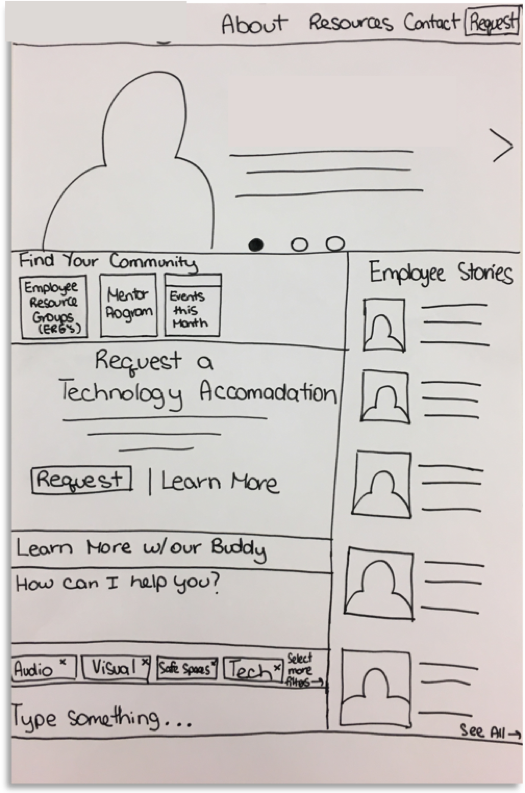 About Resources Contact Request
Find Your Community
Employee
Resource
Groups
(ERG's)
Mentor
Program
Events
this
Month
Employee Stories
Request a
Technology Accomadation
Request | Learn More
Learn More w/our Buddy
How can I help you?
Audio x Visual x Safe Spaces x Tech x
Select
more
filters→
Type something...
See All→